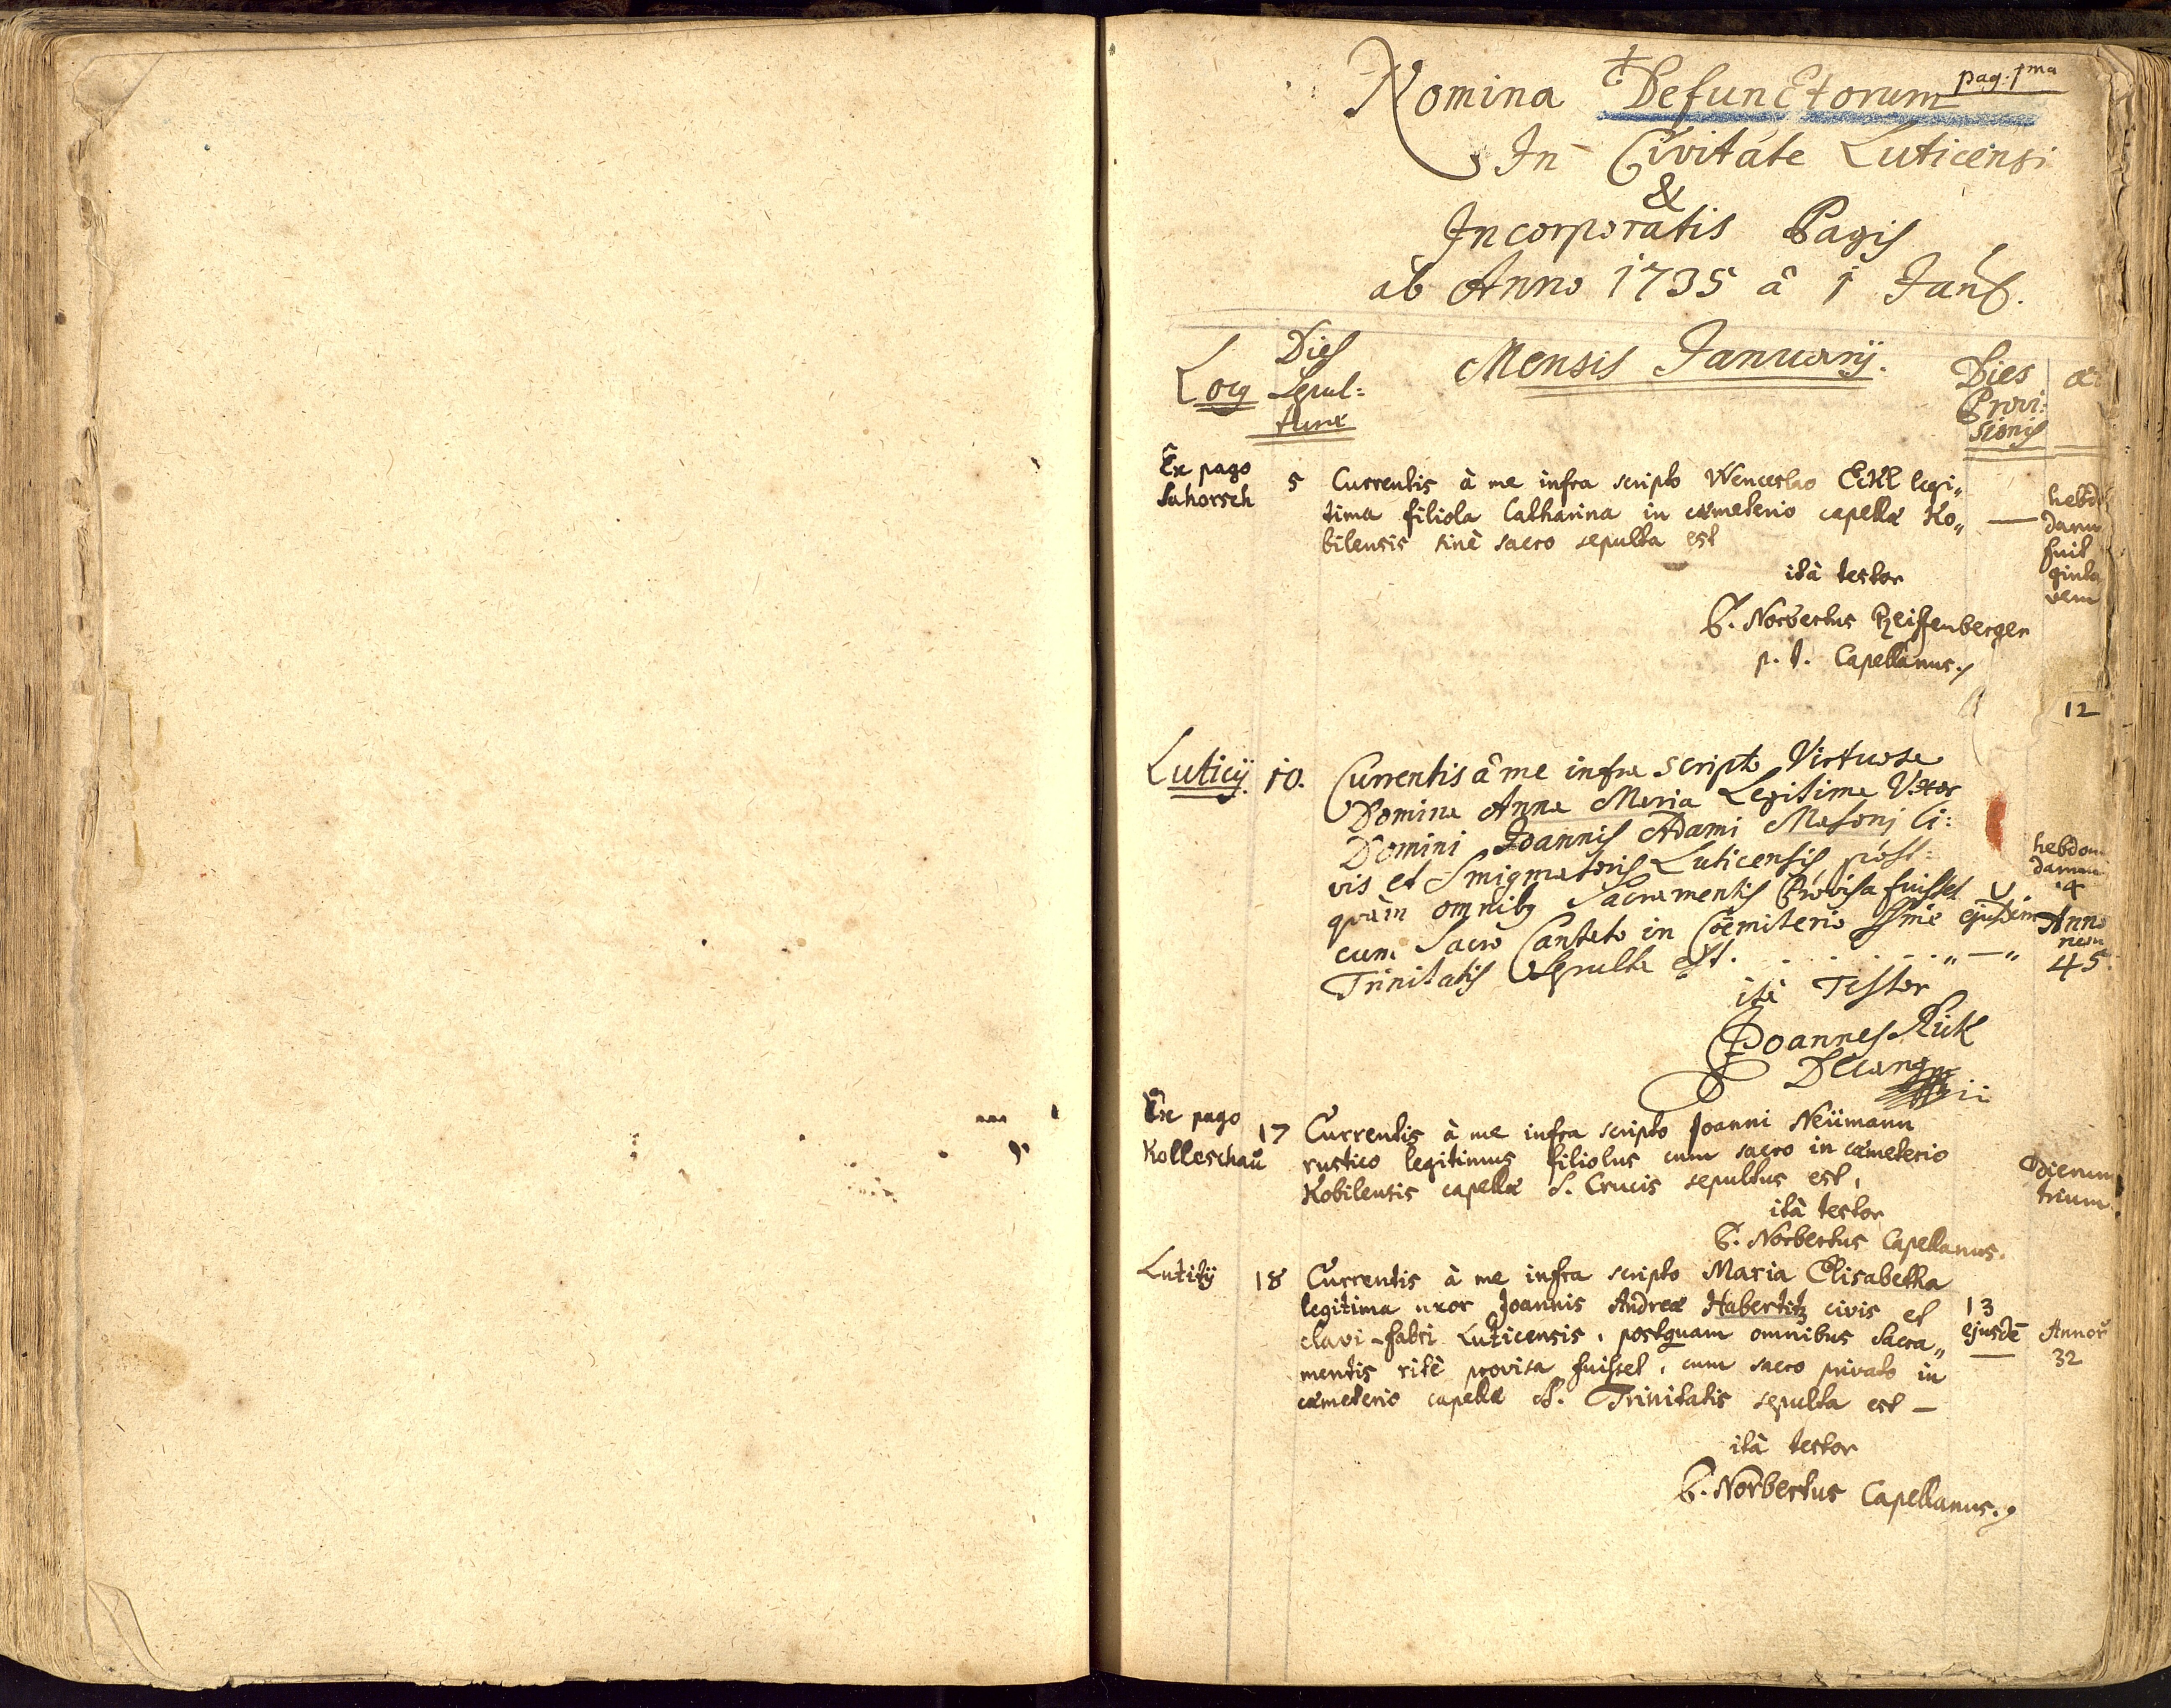 pag: 1ma
Nomina Defunctorum
In Civitate Luticensi
&
Incorporatis Pagis
ab Anno 1735 â 1 Januarÿ.
Locg Dies Sepul=
turæ
Mensis Januarij.
Dies
Provi:
sionis
Ex pago
Sahorsch
5 Currentis à me infra scripto Wenceslao Eckl legi„
tima filiola Catharina in cæmeterio capellæ Ko„
bilensis sinè sacro sepulta est
—
hebdo
daru
fuit
ita testor
P. Norbertus Reiffenberger
p. t. Capellanus.
12
Luticij. 10. Currentis â me infra scripto Virtuosa
Domina Anna Maria Legitima Uxor
Domini Joannis Adami Masonj Ci:
vis et Smigmatoris Luticensis post:
quàm omnibg Sacramentis Provisa fuisset
cum Sacro Cantato in Coemiterio Ssmæ
Trinitatis Sepulta est. . . . . . . „ — „
ejusdem
hebdom
darum
4
Anno
45.
ita Testor
Joannes Rick
Decang
Ex pago
Kolleschau
17 Currentis à me infra scripto Joanni Neümann
rustico legitimus filiolus cum sacro in cæmeterio
Kobilensis capellæ S. Crucis sepultus est,
Dierum
trium.
ità testor
P. Norbertus Capellanus.
Lutitÿ
18 Currentis à me infra scripto Maria Elisabetha
legitima uxor Joannis Andreæ Habertitz civis et
clavi-fabri Luticensis, postquam omnibus Sacra„
mentis ritè provisa fuisset, cum sacro privato in
cæmeterio capellæ S. Trinitatis sepulta est —
13
ejusdē
Annor
32
ità testor
P. Norbertus Capellanus.